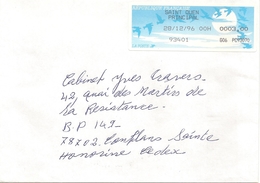 SAINT OUEN
PRINCIPAL
28/10/96 00H 0003,00
93401
Cabinet Yves Travers.
42, quai des Martirs de
la Resistance.
BP 149-
78702 Conflans Sainte
Honorine Cedex